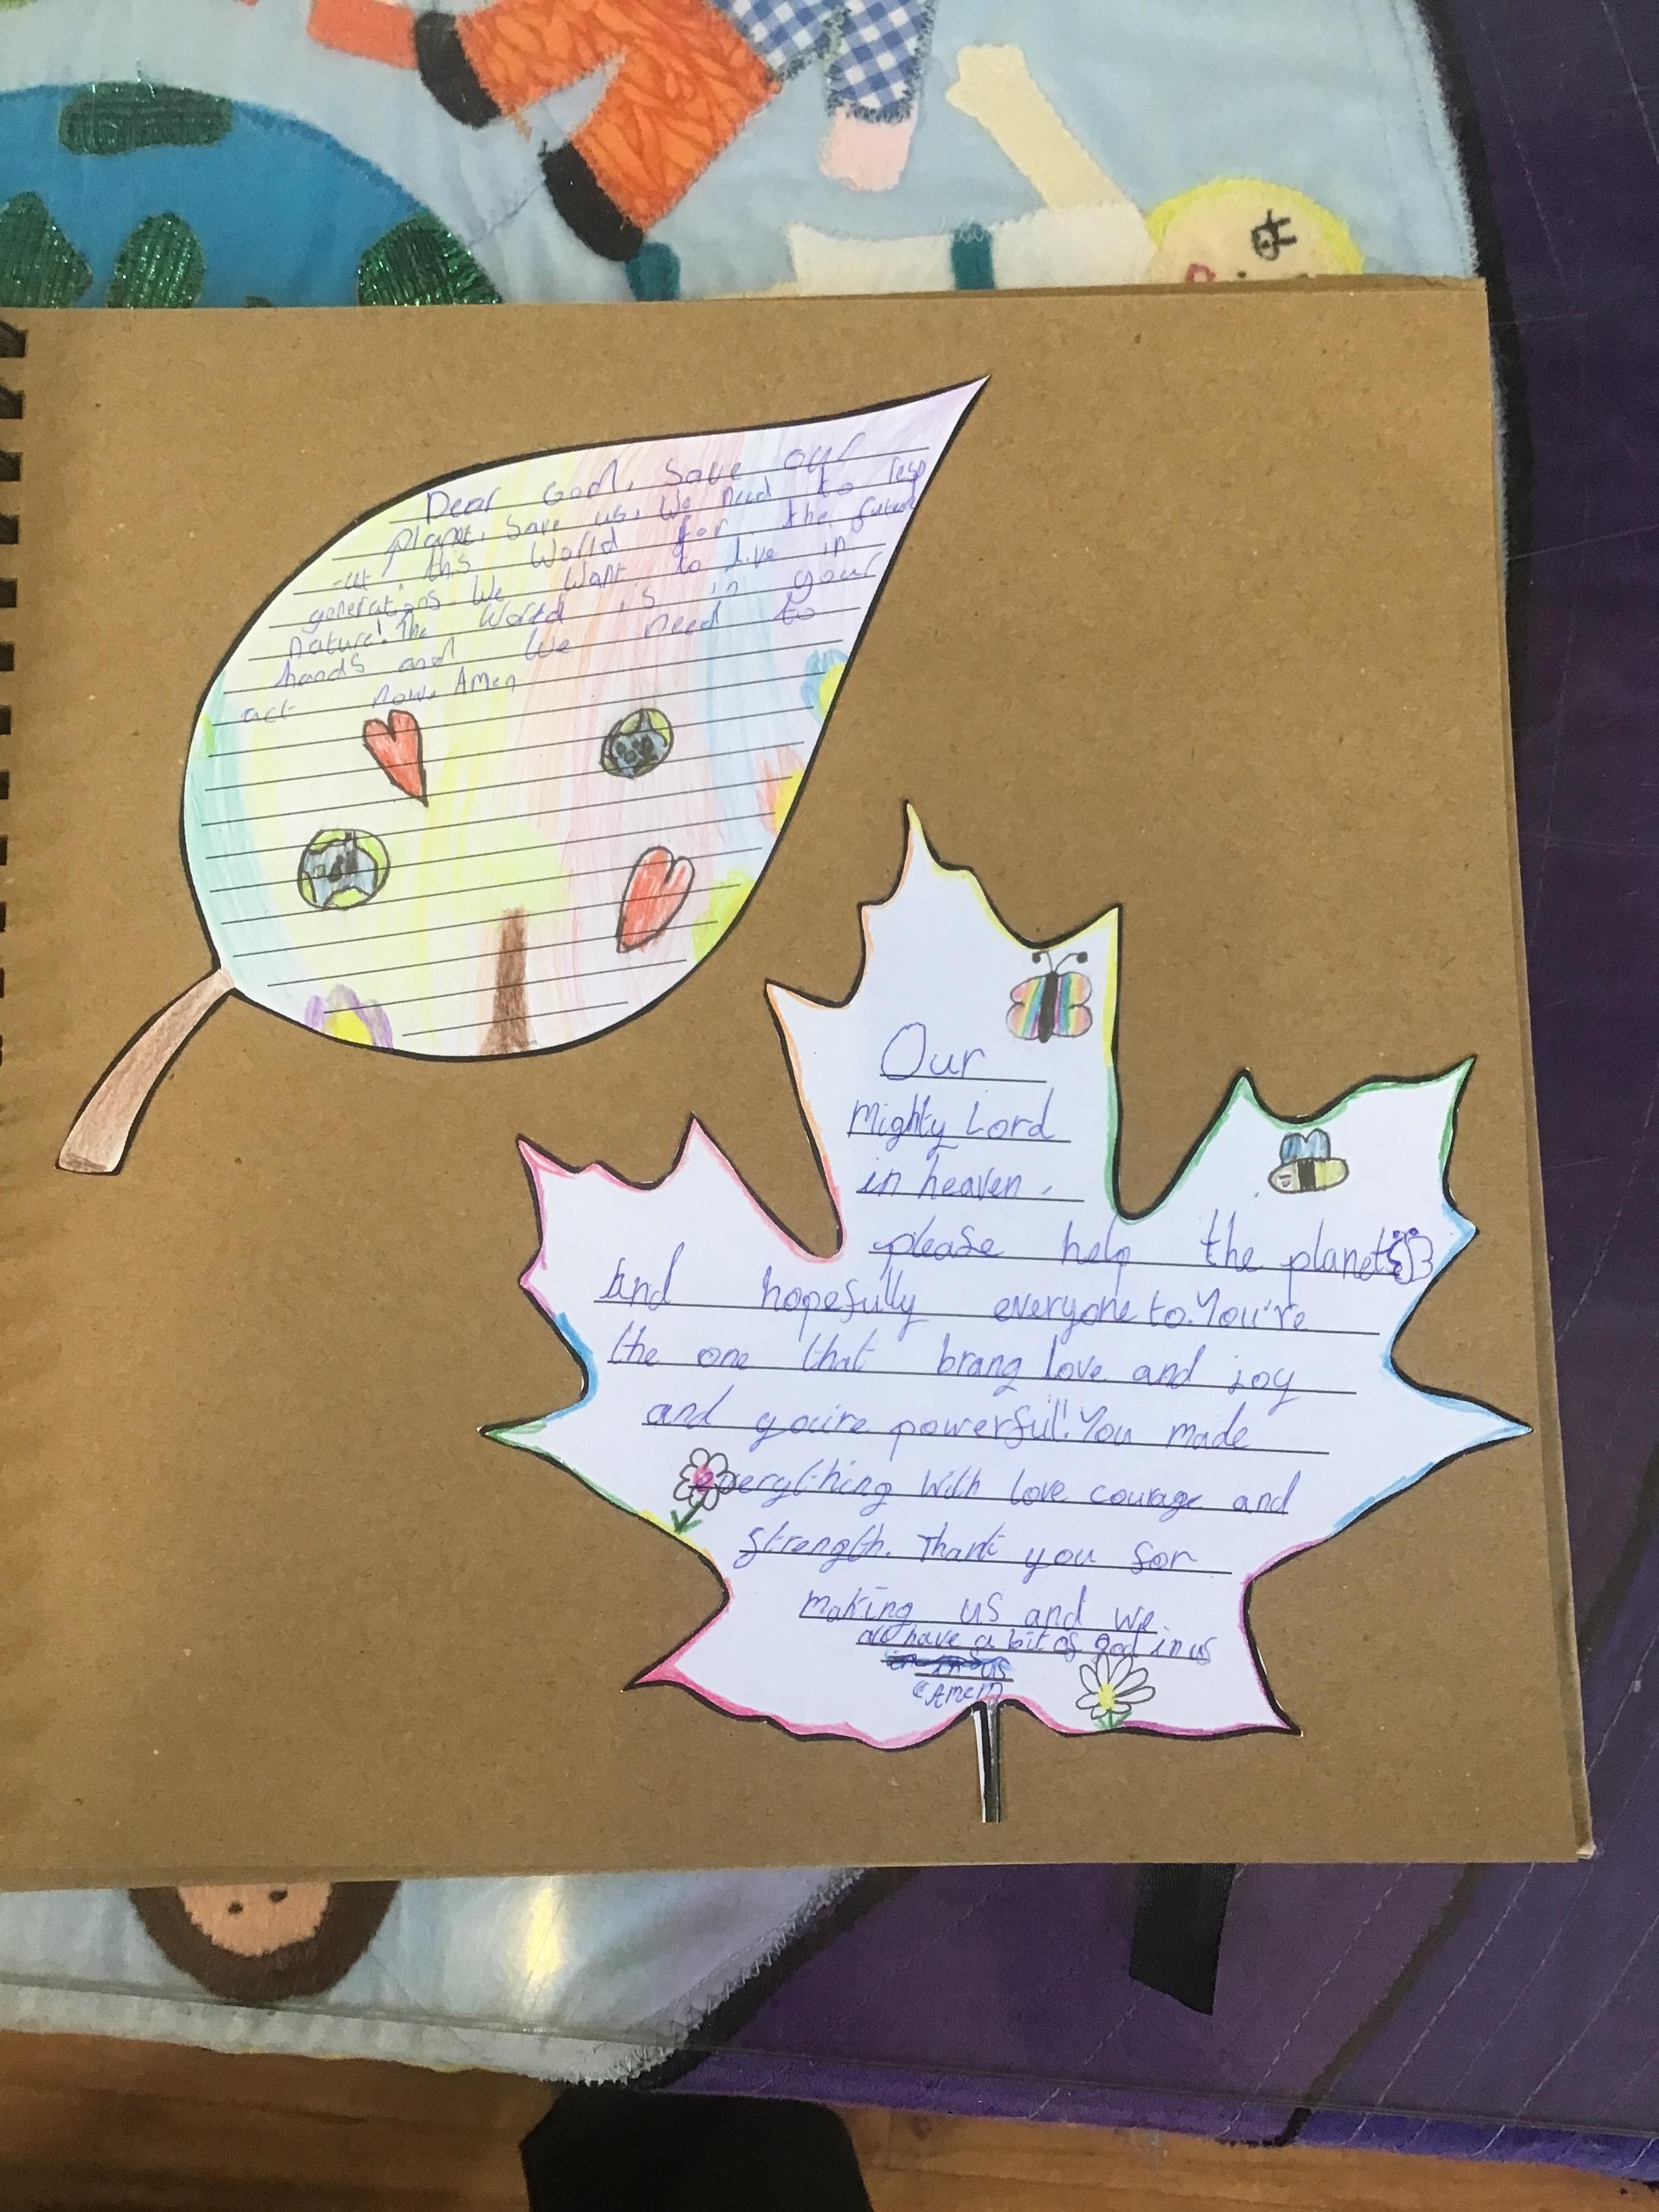 Dear God, Save our
planet, Save us, We need to resp
-ct this World for the future
generations. We Want to live in
nature! The World is in your
hands and We need to
act now. Amen
Our
Mighty Lord
in heaven,
please help the planet
and hopefully everyone to. You're
the one that brang love and joy
and you're powerful! You made
everything with love courage and
strength. Thank you for
making us and we
all have a bit of god in us
Amen